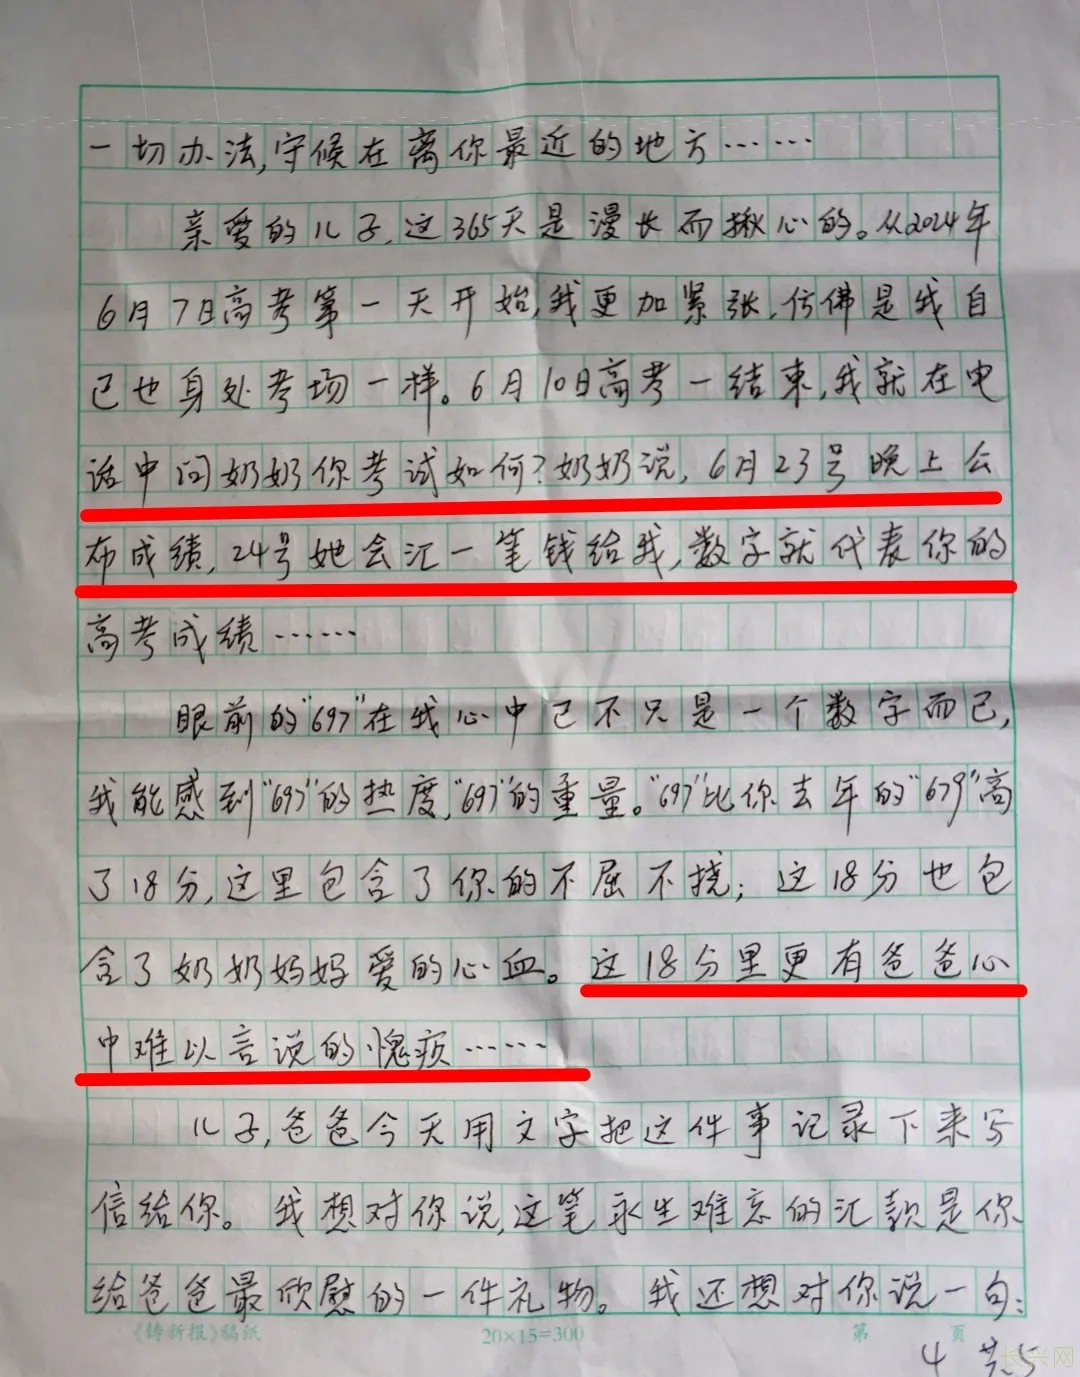 一切办法,守候在离你最近的地方……
亲爱的儿子,这365天是漫长而揪心的。从2024年
6月7日高考第一天开始,我更加紧张,仿佛是我自
己也身处考场一样。6月10日高考一结束,我就在电
话中问奶奶你考试如何?奶奶说,6月23号晚上公
布成绩,24号她会汇一笔钱给我,数字就代表你的
高考成绩……
眼前的"697"在我心中已不只是一个数字而已,
我能感到"697"的热度,"697"的重量。"697"比你去年的"679"高
了18分,这里包含了你的不屈不挠;这18分也包
含了奶奶妈妈爱的心血。这18分里更有爸爸心
中难以言说的愧疚……
儿子,爸爸今天用文字把这件事记录下来写
信给你。我想对你说,这笔永生难忘的汇款是你
给爸爸最欣慰的一件礼物。我还想对你说一句:
《铸新报》稿纸 20×15=300 第 页
4 共5
长兴网